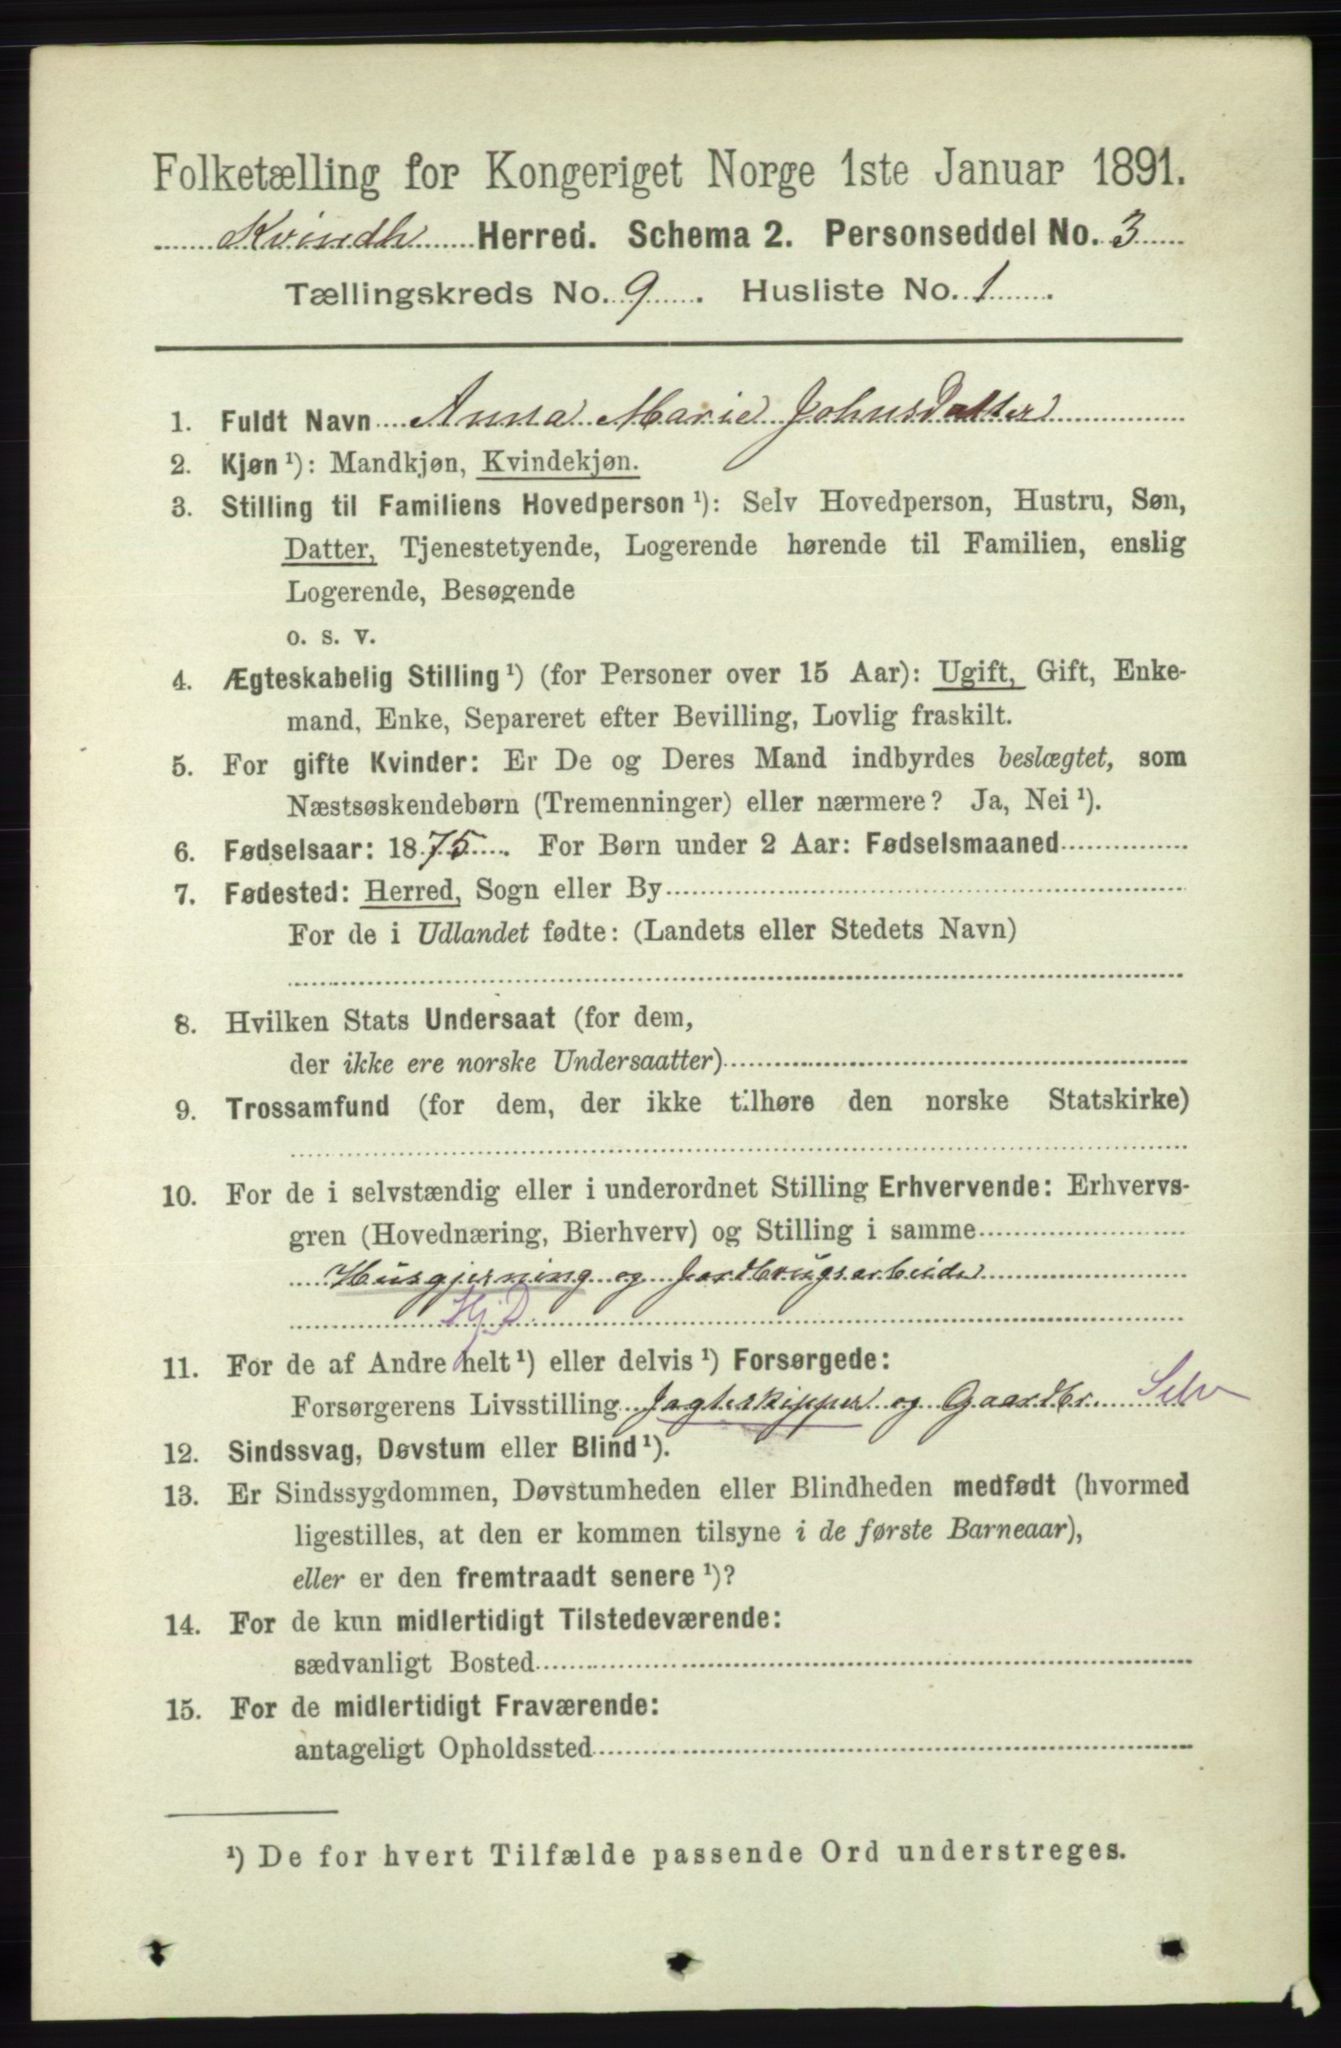 Folketælling for Kongeriget Norge 1ste Januar 1891.
Kvindh Herred. Schema 2. Personseddel No. 3
Tællingskreds No. 9. Husliste No. 1.
1. Fuldt Navn Anna Marie JohnsDatter
2. Kjøn ¹): Mandkjøn, Kvindekjøn.
3. Stilling til Familiens Hovedperson ¹): Selv Hovedperson, Hustru, Søn,
Datter, Tjenestetyende, Logerende hørende til Familien, enslig
Logerende, Besøgende
o. s. v.
4. Ægteskabelig Stilling ¹) (for Personer over 15 Aar): Ugift, Gift, Enke-
mand, Enke, Separeret efter Bevilling, Lovlig fraskilt.
5. For gifte Kvinder: Er De og Deres Mand indbyrdes beslægtet, som
Næstsøskendebørn (Tremenninger) eller nærmere? Ja, Nei ¹).
6. Fødselsaar: 1875. For Børn under 2 Aar: Fødselsmaaned
7. Fødested: Herred, Sogn eller By
For de i Udlandet fødte: (Landets eller Stedets Navn)
8. Hvilken Stats Undersaat (for dem,
der ikke ere norske Undersaatter)
9. Trossamfund (for dem, der ikke tilhøre den norske Statskirke)
10. For de i selvstændig eller i underordnet Stilling Erhvervende: Erhvervs-
gren (Hovednæring, Bierhverv) og Stilling i samme
Husgjerning og Jordbrugsarbeide
Hj. D.
11. For de af Andre helt ¹) eller delvis ¹) Forsørgede:
Forsørgerens Livsstilling Jagteskipper og Gaardbr. Selv
12. Sindssvag, Døvstum eller Blind ¹).
13. Er Sindssygdommen, Døvstumheden eller Blindheden medfødt (hvormed
ligestilles, at den er kommen tilsyne i de første Barneaar),
eller er den fremtraadt senere ¹)?
14. For de kun midlertidigt Tilstedeværende:
sædvanligt Bosted
15. For de midlertidigt Fraværende:
antageligt Opholdssted
¹) De for hvert Tilfælde passende Ord understreges.